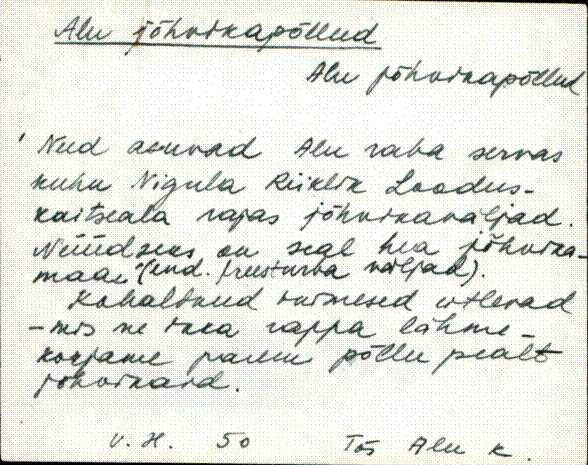 Alu jõhvikapõllud
Alu jõhvikapõllud
' Need asuvad Alu raba servas
kuhu Nigula Riiklik Loodus-
kaitseala rajas jõhvikaväljad.
Nüüdseks on seal hea jõhvika-
maa." (end. freesturba väljad).
Kohalikud inimesed ütlevad
- mis me ikka rappa lähme -
korjame parem põllu pealt
jõhvikaid.
V. H. 50 Tõs Alu k.